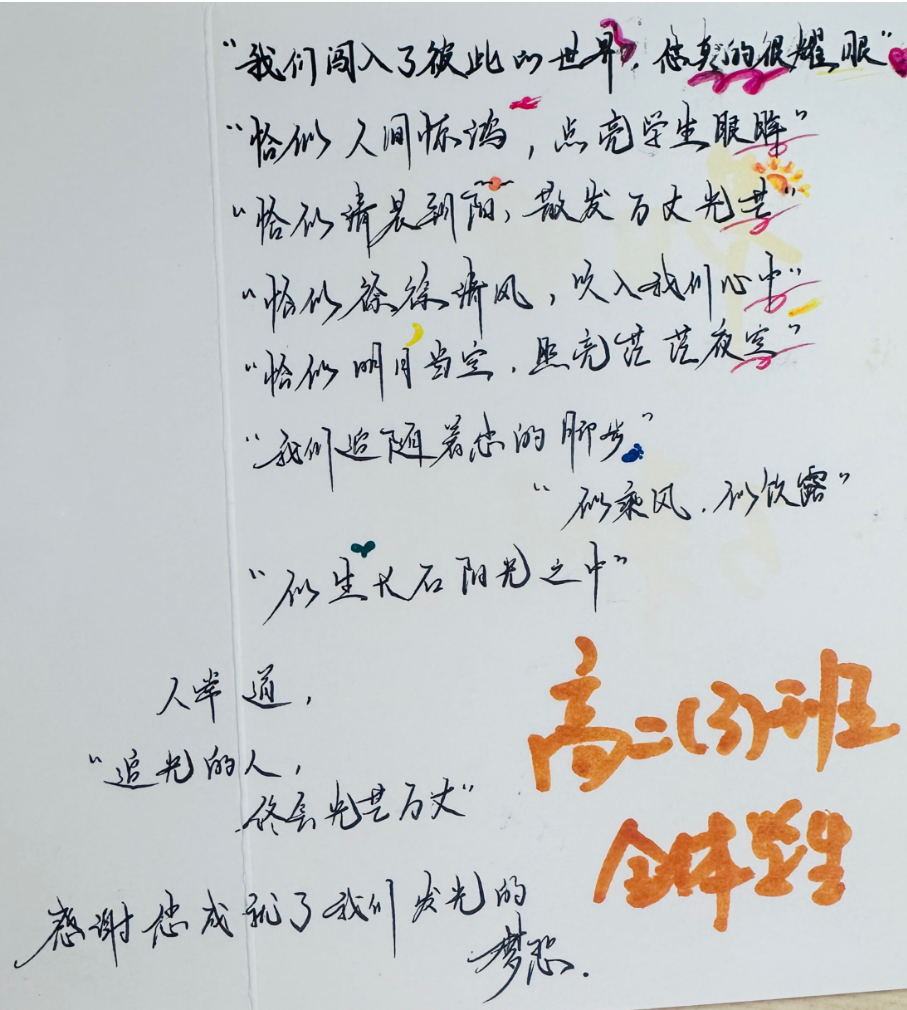 “我们闯入了彼此的世界，您真的很耀眼”
“恰似人间惊鸿，点亮学生眼眸”
“恰似清晨朝阳，散发万丈光芒”
“恰似徐徐清风，吹入我们心中”
“恰似明月当空，照亮茫茫夜空”
“我们追随着您的脚步”
“似乘风，似饮露”
“似生长在阳光之中”
人常道，
“追光的人，
终会光芒万丈”
感谢您成就了我们发光的
梦想.
高二(3)班
全体学生